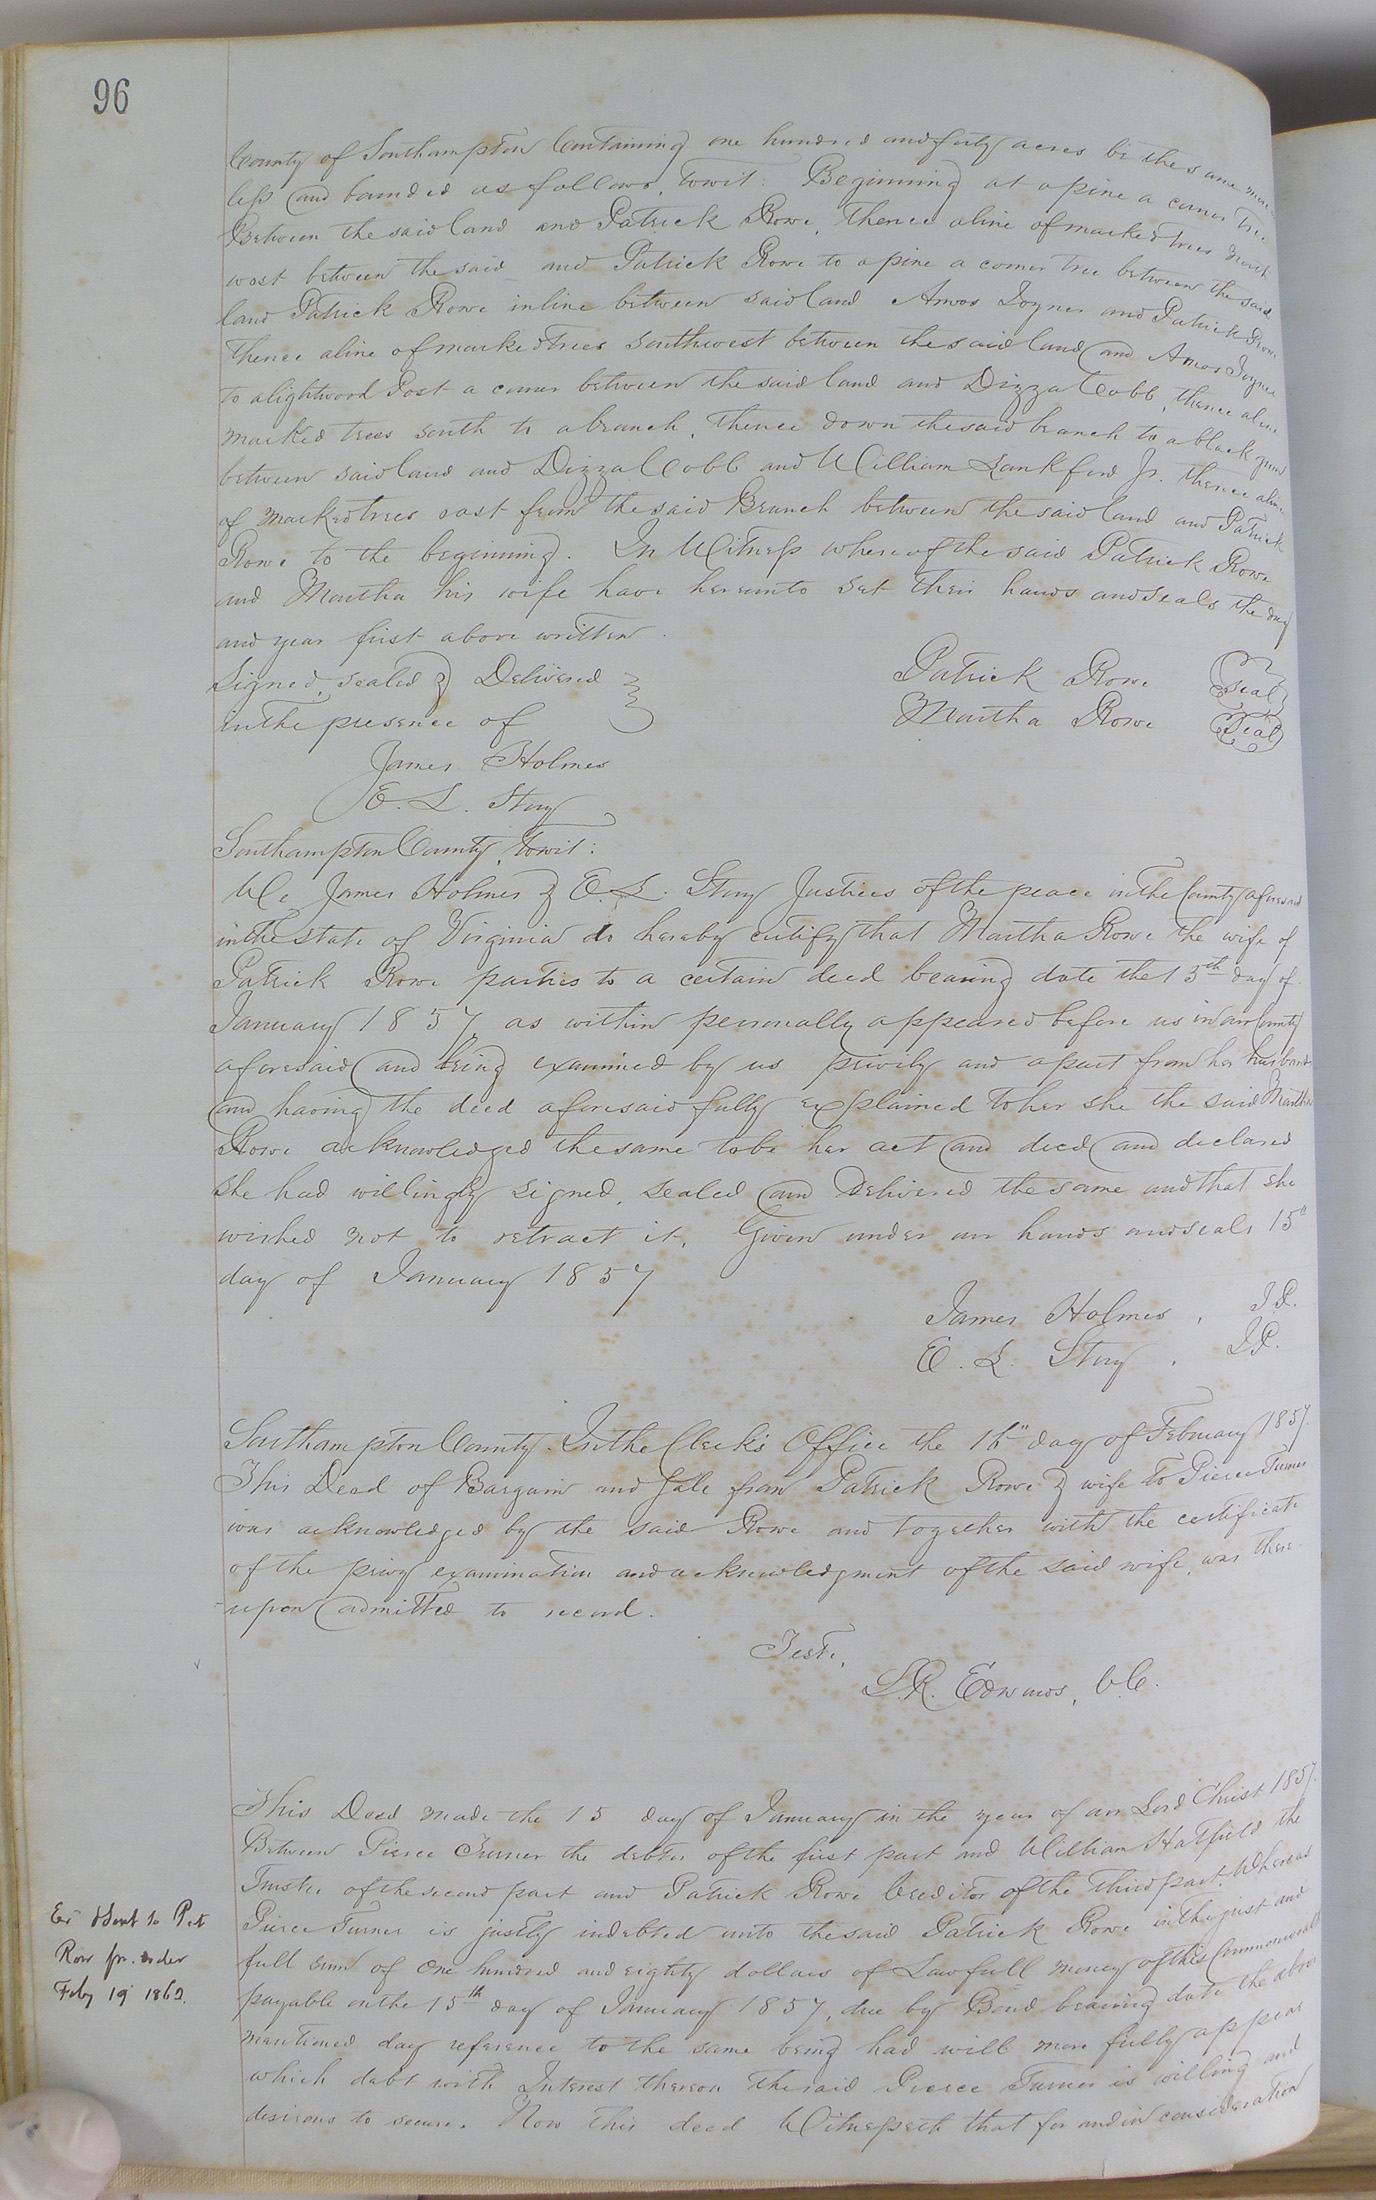 96
County of Southampton Containing one hundred and forty acres be the same more
less and bounded as follows, towit: Beginning at a pine a corner tree
Between the said land and Patrick Rowe, thence a line of marked trees North
west between the said and Patrick Rowe to a pine a corner tree between the said
land Patrick Rowe in line between said land Amos Joyner and Patrick Rowe
thence a line of marked trees southwest between the said land and Amos Joyner
to a lightwood Post a corner between the said land and Dizza Cobb, thence a line
marked trees south to a branch, thence down the said branch to a black gum
between said land and Dizza Cobb and William Lankford Jr. thence a line
of marked trees east from the said Branch between the said land and Patrick
Rowe to the beginning. In Witness whereof the said Patrick Rowe
and Martha his wife have hereunto set their hands and seals the day
and year first above written.
Signed, sealed & Delivered
in the presence of
Patrick Rowe Seal
Martha Rowe Seal
James Holmes
E. L. Story
Southampton County, towit:
We James Holmes & E. L. Story Justices of the peace in the County aforesaid
in the state of Virginia do hereby certify that Martha Rowe the wife of
Patrick Rowe parties to a certain deed bearing date the 15th day of
January 1857, as within personally appeared before us in our County
aforesaid and being examined by us privily and apart from her husband
and having the deed aforesaid fully explained to her she the said Martha
Rowe acknowledged the same to be her act and deed and declared
she had willingly signed, sealed and Delivered the same and that she
wished not to retract it. Given under our hands and seals 15"
day of January 1857
James Holmes, J.P.
E. L. Story, J.P.
Southampton County. In the Clerk's Office the 16" day of February 1857.
This Deed of Bargain and Sale from Patrick Rowe & wife to Pierce Turner
was acknowledged by the said Rowe and together with the certificate
of the privy examination and acknowledgment of the said wife, was there-
-upon admitted to record.
Teste,
L.R. Edwards, C.C.
This Deed made the 15 day of January in the year of our Lord Christ 1857.
Between Pierce Turner the debtor of the first part and William Hatfield the
Trustee of the second part and Patrick Rowe Creditor of the third part. Whereas
Pierce Turner is justly indebted unto the said Patrick Rowe in the just and
full sum of One hundred and eighty dollars of Lawfull money of this Commonwealth
payable on the 15th day of January 1857, due by Bond bearing date the above
mentioned day reference to the same being had will more fully appear
which debt with Interest thereon the said Pierce Turner is willing and
desirous to secure. Now this deed Witnesseth that for and in consideration
Ex & Sent to Pat
Row pr. order
Feby 19 1862.